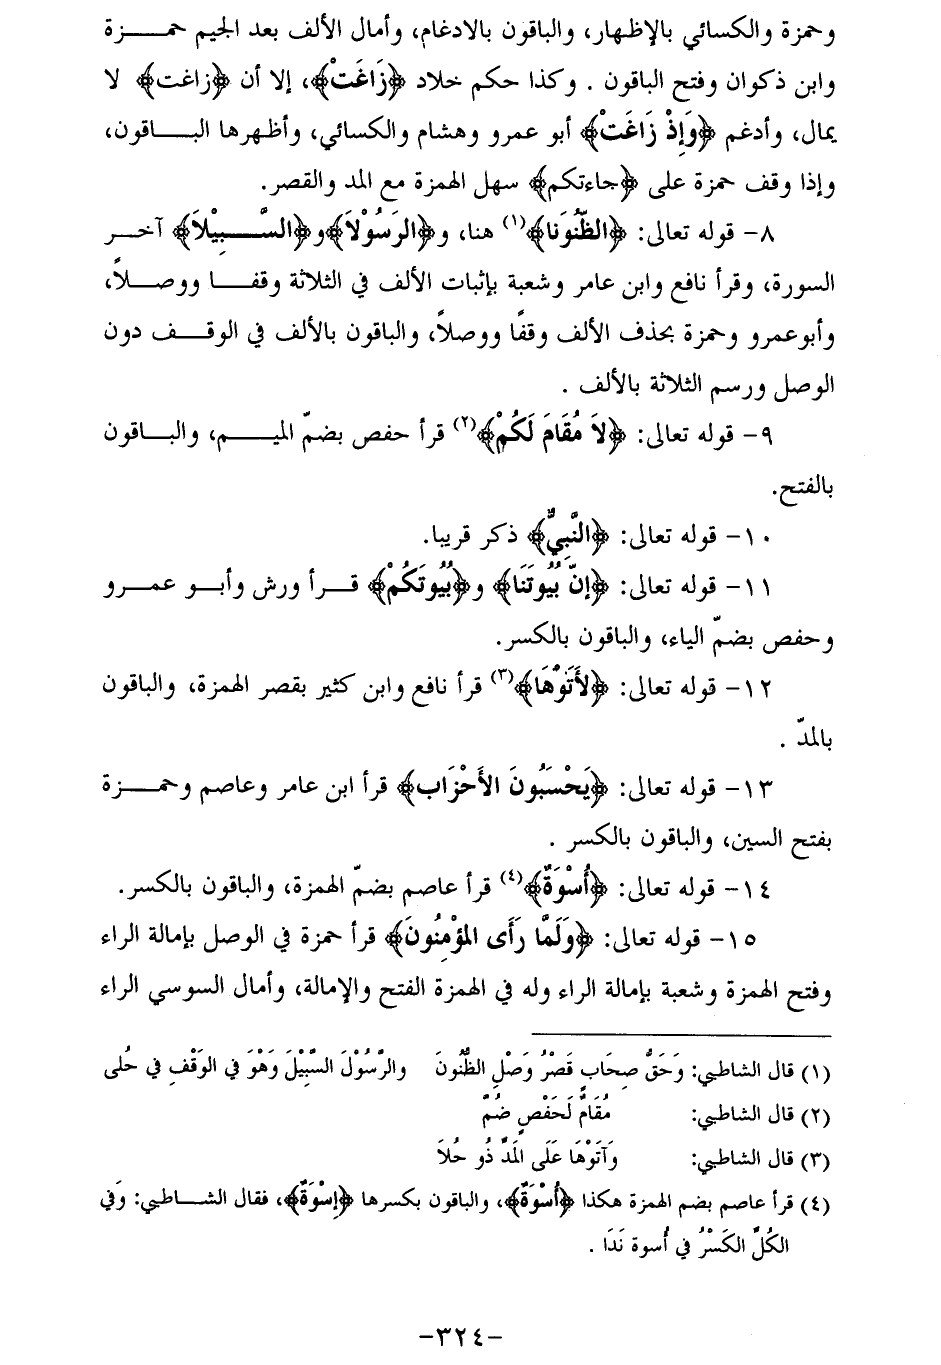 وحمزة والكسائي بالإظهار، والباقون بالادغام، وأمال الألف بعد الجيم حمـــزة
وابن ذكوان وفتح الباقون . وكذا حكم خلاد ﴿زَاغَتْ﴾، إلا أن ﴿زاغت﴾ لا
يمال، وأدغم ﴿وَإِذْ زَاغَتْ﴾ أبو عمرو وهشام والكسائي، وأظهرها البـــاقون،
وإذا وقف حمزة على ﴿جاءتكم﴾ سهل الهمزة مع المد والقصر.
٨- قوله تعالى: ﴿الظُّنُونَا﴾(١) هنا، و﴿الرَسُوْلَا﴾و﴿السَّـــبِيْلاَ﴾ آخـــر
السورة، وقرأ نافع وابن عامر وشعبة بإثبات الألف في الثلاثة وقفـــا ووصـــلاً،
وأبوعمرو وحمزة بحذف الألف وقفًا ووصلاً، والباقون بالألف في الوقـــف دون
الوصل ورسم الثلاثة بالألف .
٩- قوله تعالى: ﴿لاَ مُقَامَ لَكُمْ﴾(٢) قرأ حفص بضمّ الميـــم، والبـــاقون
بالفتح.
١٠- قوله تعالى: ﴿النَّبِيٌّ﴾ ذكر قريبا.
١١- قوله تعالى: ﴿إنّ بُيُوتَنَا﴾ و﴿بُيُوتَكُمْ﴾ قـــرأ ورش وأبـــو عمـــرو
وحفص بضمّ الياء، والباقون بالكسر.
١٢- قوله تعالى: ﴿لأَتَوْهَا﴾(٣) قرأ نافع وابن كثير بقصر الهمزة، والباقون
بالمدّ .
١٣- قوله تعالى: ﴿يَحْسَبُونَ الأَحْزَاب﴾ قرأ ابن عامر وعاصم وحمـــزة
بفتح السين، والباقون بالكسر .
١٤- قوله تعالى: ﴿أُسْوَةٌ﴾(٤) قرأ عاصم بضمّ الهمزة، والباقون بالكسر.
١٥- قوله تعالى: ﴿وَلَمَّا رَأَى المؤْمِنُونَ﴾ قرأ حمزة في الوصل بإمالة الراء
وفتح الهمزة وشعبة بإمالة الراء وله في الهمزة الفتح والإمالة، وأمال السوسي الراء
(١) قال الشاطبي: وَحَقُّ صِحَابٍ قَصْرُ وَصْلِ الظُّنُونَ والرَّسُوْلَ السَّبِيْلَ وَهْوَ في الوَقْفِ في حُلى
(٢) قال الشاطبي: مُقَامٌ لَحَفْصٍ ضُمّ
(٣) قال الشاطبي: وَآتَوْهَا عَلَى المَدِّ ذُو حُلاَ
(٤) قرأ عاصم بضم الهمزة هكذا ﴿أُسْوَةٌ﴾، والباقون بكسرها ﴿إسْوَةٌ﴾، فقال الشـــاطبي: وَفي
الكُلِّ الكَسْرُ في أُسوة نَدَا .
-٣٢٤-